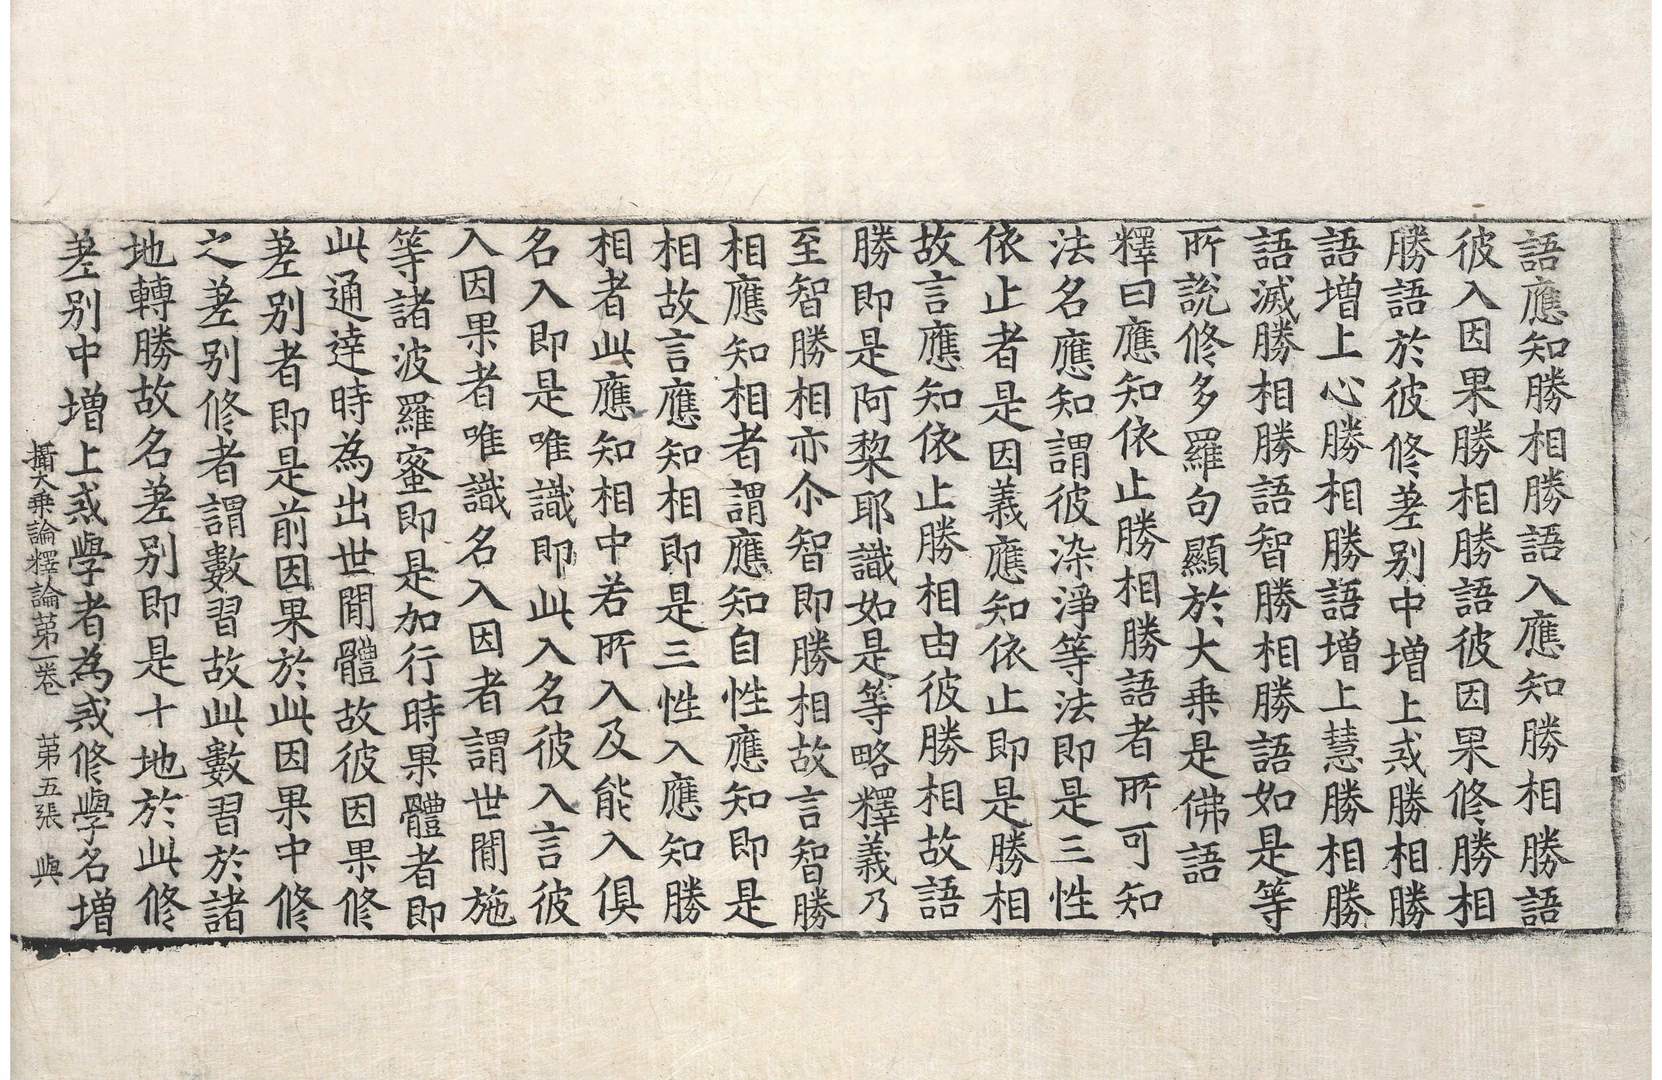 語應知勝相勝語入應知勝相勝語
彼入因果勝相勝語彼因果修勝相
勝語於彼修差别中増上戒勝相勝
語増上心勝相勝語増上慧勝相勝
語滅勝相勝語智勝相勝語如是等
所說修多羅句顯於大乗是佛語
釋曰應知依止勝相勝語者所可知
法名應知謂彼染淨等法即是三性
依止者是因義應知依止即是勝相
故言應知依止勝相由彼勝相故語
勝即是阿棃耶識如是等略釋義乃
至智勝相亦尒智即勝相故言智勝
相應知相者謂應知自性應知即是
相故言應知相即是三性入應知勝
相者此應知相中若所入及能入俱
名入即是唯識即此入名彼入言彼
入因果者唯識名入因者謂世間施
等諸波羅蜜即是加行時果體者即
此通達時為出世間體故彼因果修
差别者即是前因果於此因果中修
之差别修者謂數習故此數習於諸
地轉勝故名差别即是十地於此修
差别中増上戒學者為戒修學名増
攝大乗論釋論第一卷 第五張 與